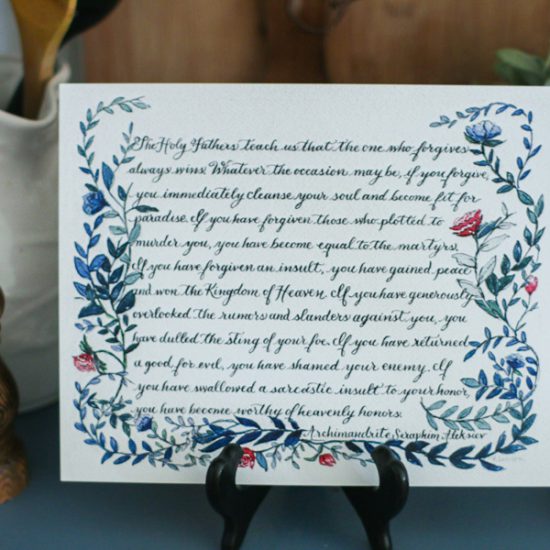 The Holy Fathers teach us that the one who forgives
always wins. Whatever the occasion may be, if you forgive,
you immediately cleanse your soul and become fit for
paradise. If you have forgiven those who plotted to
murder you, you have become equal to the martyrs.
If you have forgiven an insult, you have gained peace
and won the Kingdom of Heaven. If you have generously
overlooked the rumors and slanders against you, you
have dulled the sting of your foe. If you have returned
a good for evil, you have shamed your enemy. If
you have swallowed a sarcastic insult to your honor,
you have become worthy of heavenly honors.
Archimandrite Seraphim Aleksiev